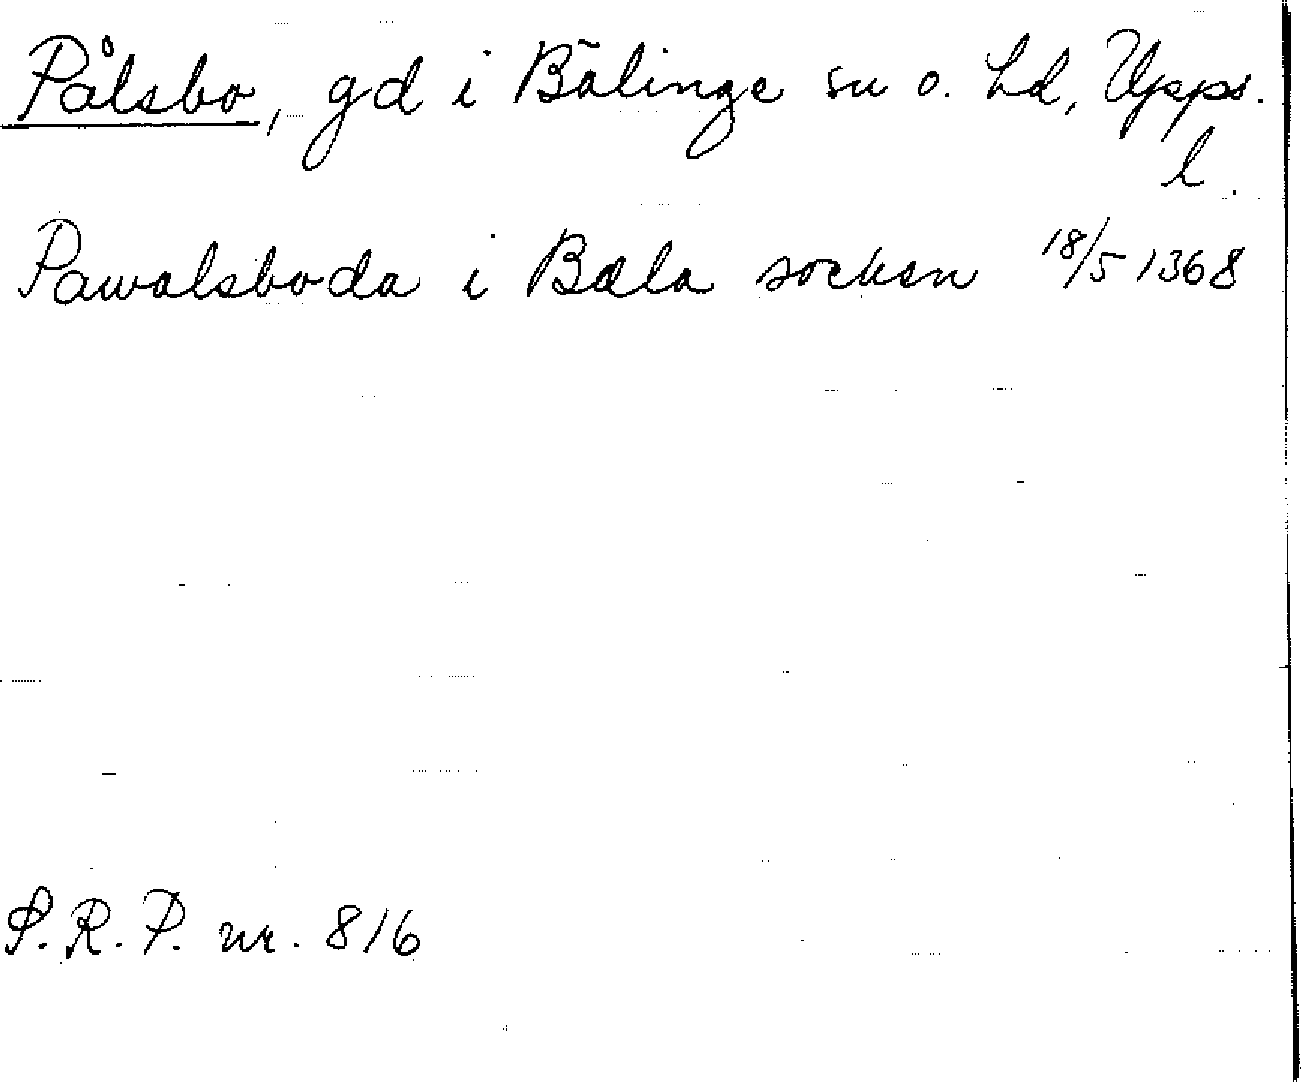 Pålsbo, gd i Bälinge sn o. hd, Upps.
l.
Pawalsboda i Bæla socken 18/5 1368
S.R.P. nr. 816